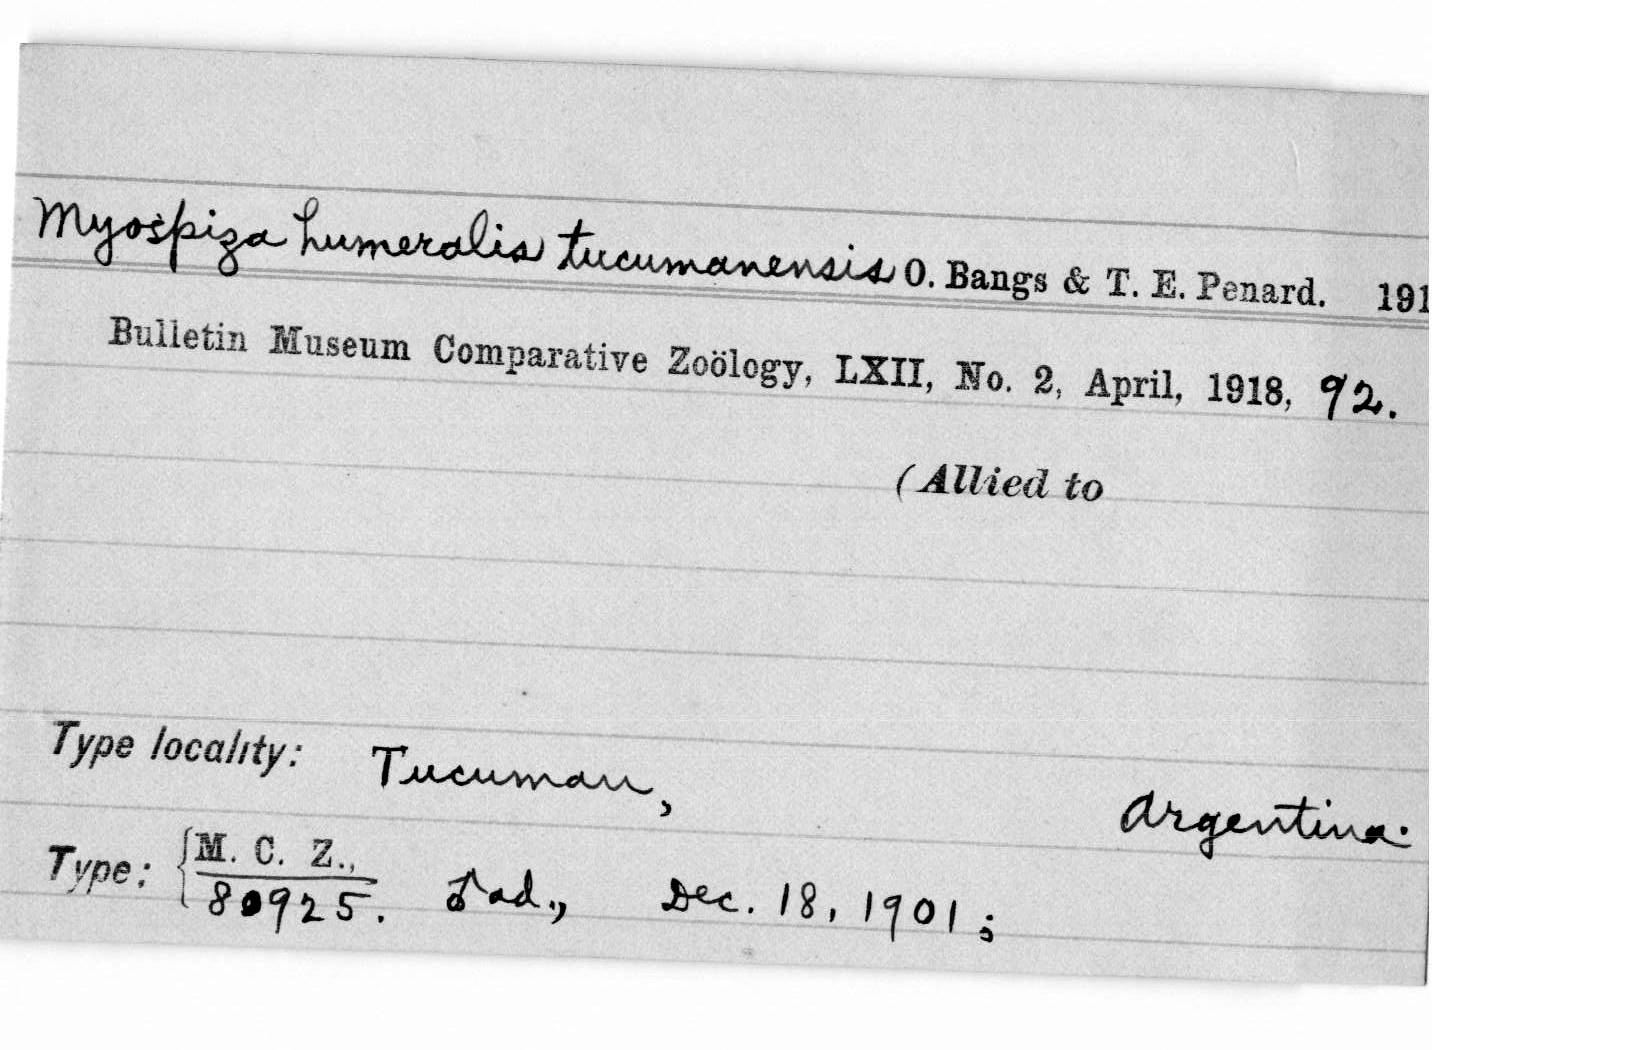 Myospiza humeralis tucumanensis O. Bangs & T. E. Penard. 191
Bulletin Museum Comparative Zoölogy, LXII, No. 2, April, 1918, 92.
(Allied to
Type locality: Tucuman, Argentina.
Type: { M. C. Z., 
80925. ♂ ad., Dec. 18, 1901;